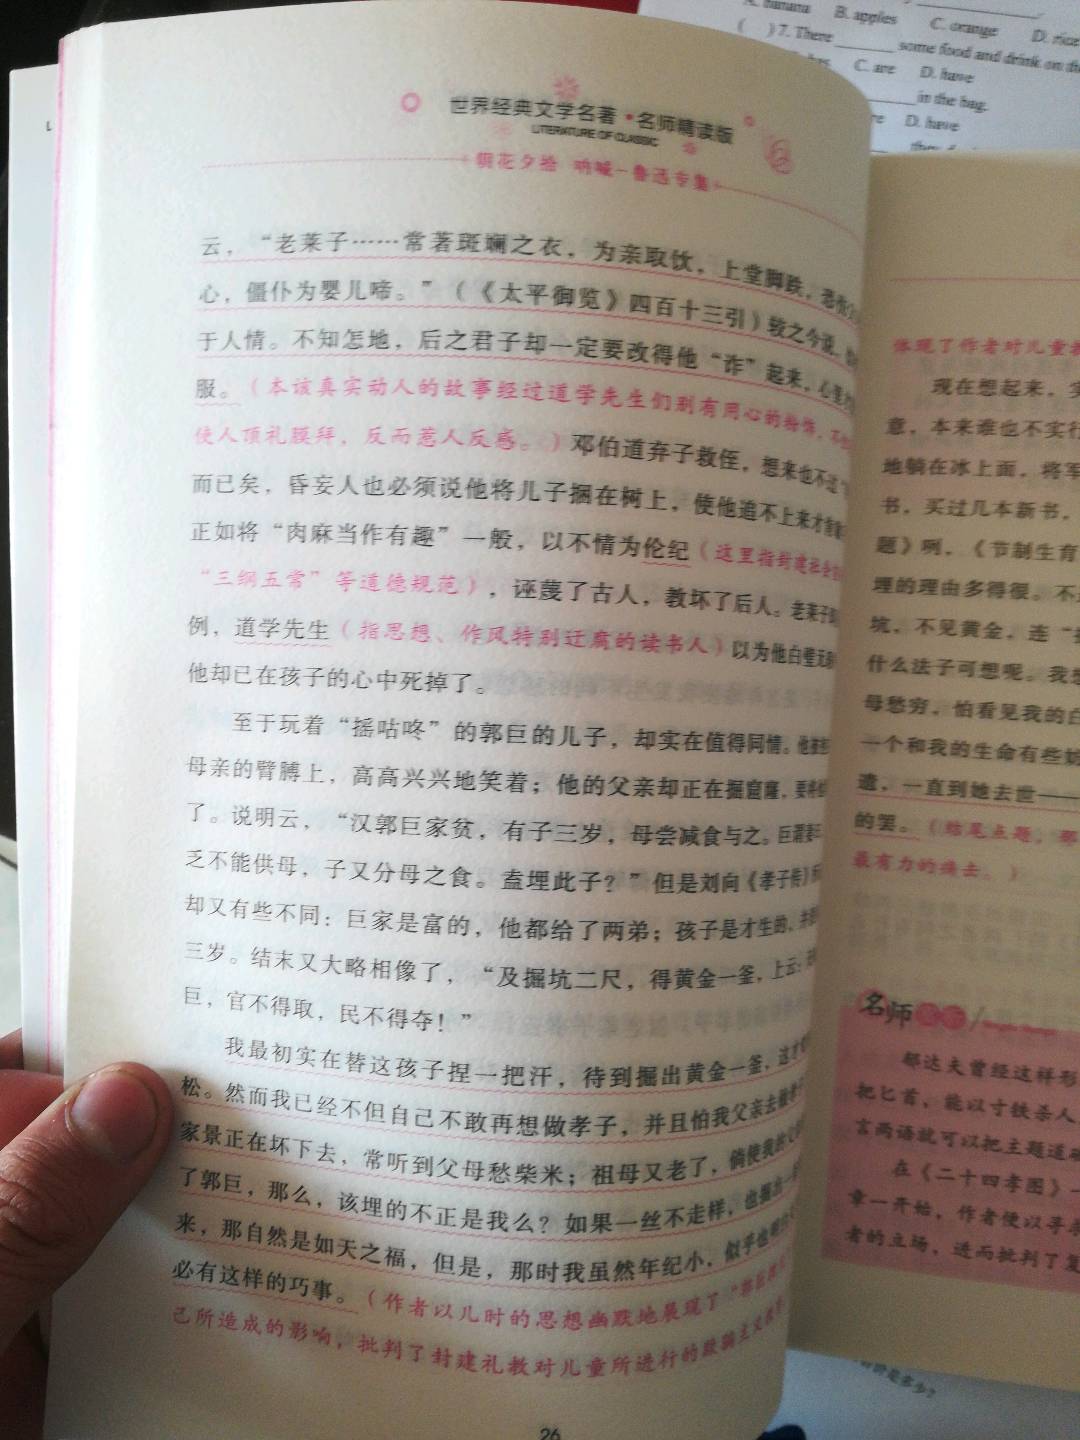 A. banana B. apples C. orange D. rice
( )7. There ______ some food and drink on the
C. are D. have
in the bag.
D. have
世界经典文学名著·名师精读版
LITERATURE OF CLASSIC
朝花夕拾 呐喊—鲁迅专集
云，“老莱子……常著斑斓之衣，为亲取饮，上堂脚跌，恐伤
心，僵仆为婴儿啼。”（《太平御览》四百十三引）较之今说，
于人情。不知怎地，后之君子却一定要改得他“诈”起来，心里
服。（本该真实动人的故事经过道学先生们别有用心的粉饰，不
使人顶礼膜拜，反而惹人反感。）邓伯道弃子救侄，想来也不过“
而已矣，昏妄人也必须说他将儿子捆在树上，使他追不上来才肯
正如将“肉麻当作有趣”一般，以不情为伦纪（这里指封建社会
“三纲五常”等道德规范），诬蔑了古人，教坏了后人。老莱子
例，道学先生（指思想、作风特别迂腐的读书人）以为他白璧无
他却已在孩子的心中死掉了。
至于玩着“摇咕咚”的郭巨的儿子，却实在值得同情。他
母亲的臂膊上，高高兴兴地笑着；他的父亲却正在掘窟窿，要将
了。说明云，“汉郭巨家贫，有子三岁，母尝减食与之。巨谓妻
乏不能供母，子又分母之食。盍埋此子？”但是刘向《孝子传》
却又有些不同：巨家是富的，他都给了两弟；孩子是才生的，并
三岁。结末又大略相像了，“及掘坑二尺，得黄金一釜，上云：
巨，官不得取，民不得夺！”
我最初实在替这孩子捏一把汗，待到掘出黄金一釜，这才
松。然而我已经不但自己不敢再想做孝子，并且怕我父亲去做孝子
家景正在坏下去，常听到父母愁柴米；祖母又老了，倘使我的父
了郭巨，那么，该埋的不正是我么？如果一丝不走样，也掘出一
来，那自然是如天之福，但是，那时我虽然年纪小，似乎也明
必有这样的巧事。（作者以儿时的思想幽默地展现了“
己所造成的影响，批判了封建礼教对儿童所进行的
26
体现了作者对儿童
现在想起来，实
意，本来谁也不实行
地躺在冰上面，将军
书，买过几本新书，
题》咧，《节制生育
埋的理由多得很。不
坑，不见黄金，连“
什么法子可想呢。我想
母愁穷，怕看见我的白
一个和我的生命有些
遗，一直到她去世——
的罢。（结尾点题，那
最有力的
名师
郁达夫曾经这样形
把匕首，能以寸铁杀人
言两语就可以把主题道破
在《二十四孝图》一
章一开始，作者便以寻
者的立场，进而批判了复